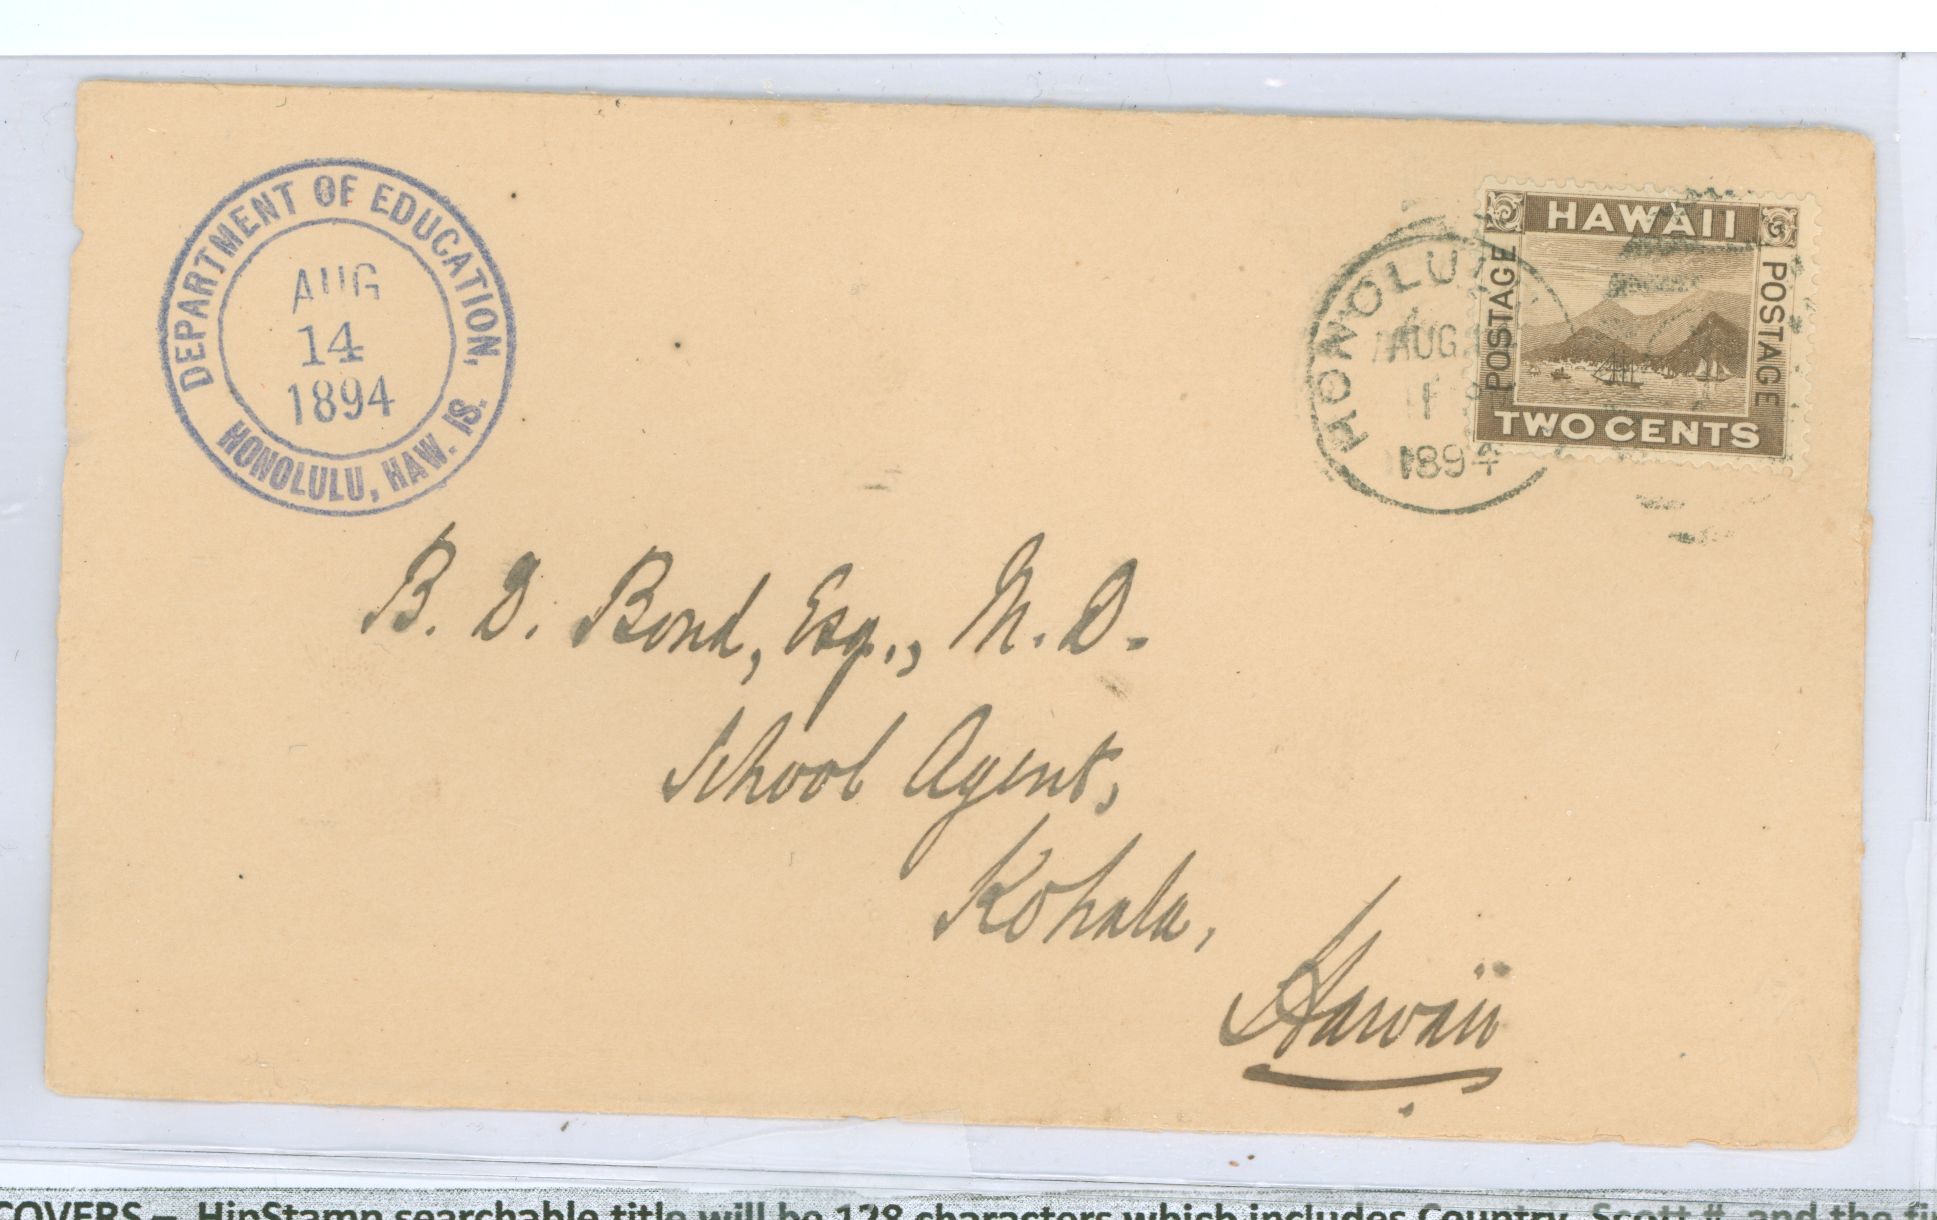 DEPARTMENT OF EDUCATION,
HONOLULU, HAW. IS.
AUG
14
1894
HONOLULU
AUG
1894
HAWAII
POSTAGE
POSTAGE
TWO CENTS
B. D. Bond, Esq., M. D.
School Agent,
Kohala,
Hawaii
COVERS – HipStamp searchable title will be 128 characters which includes Country, Scott #, and the